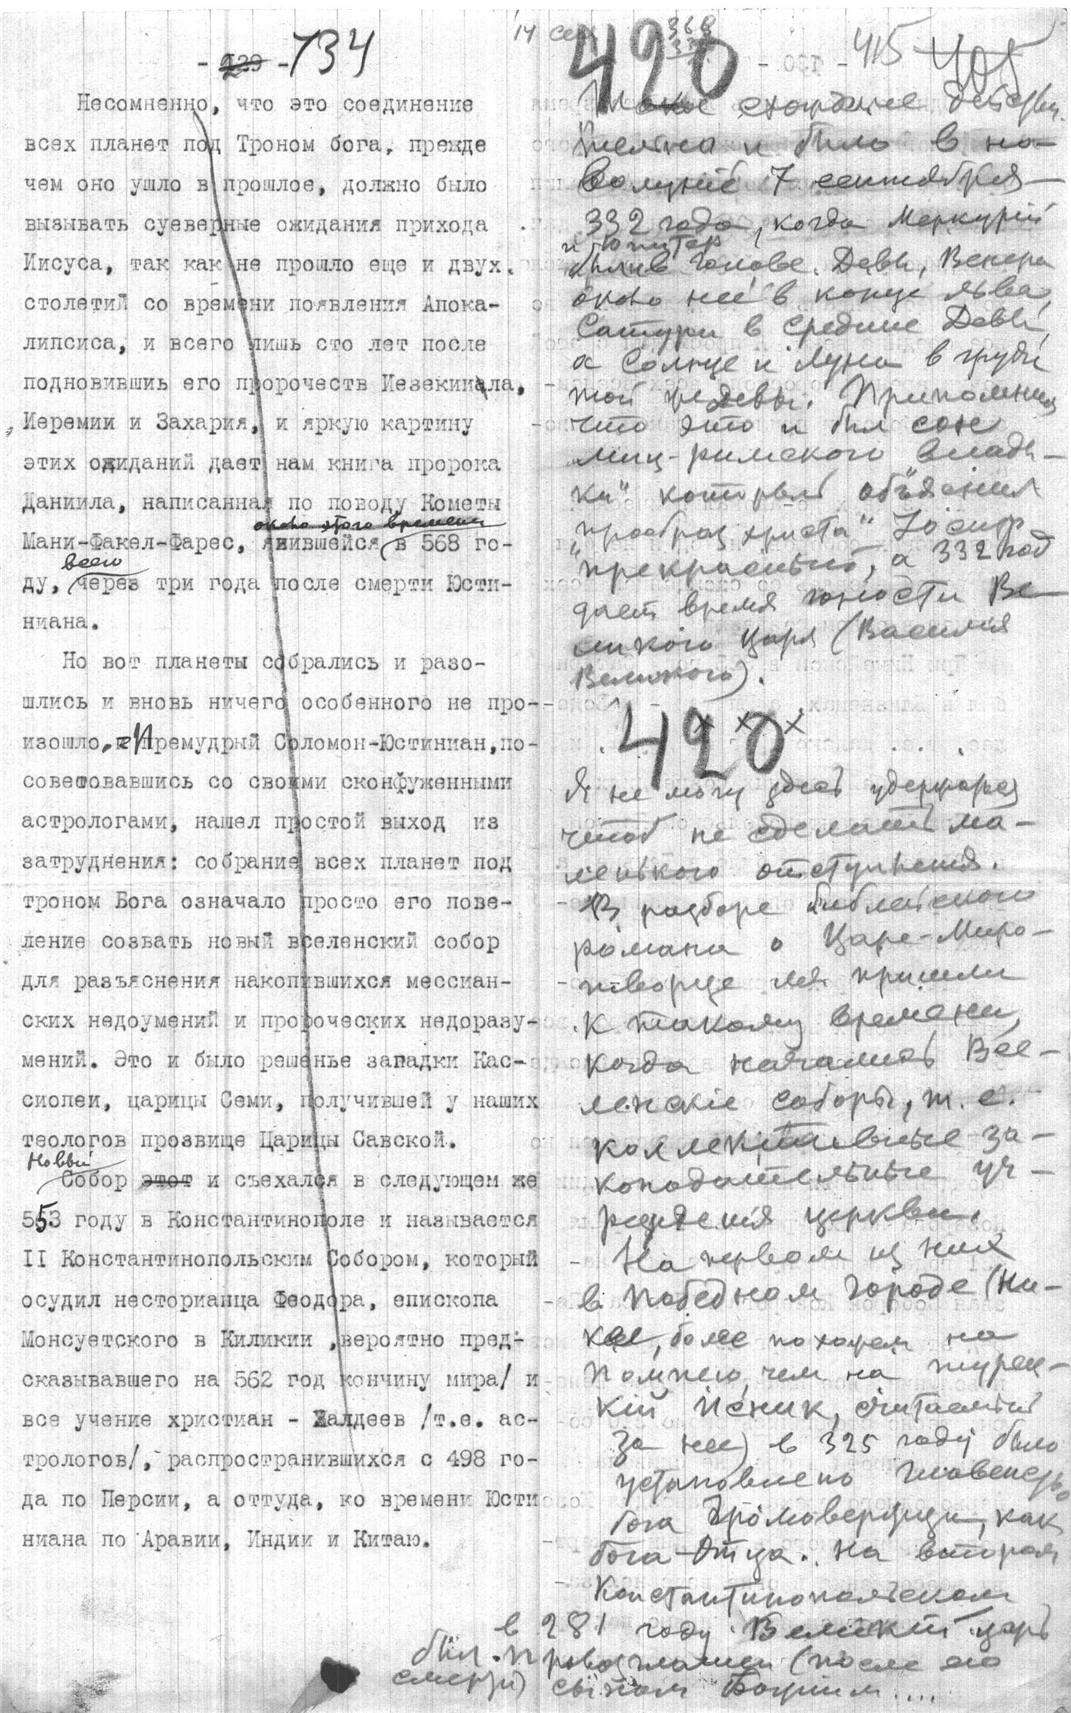 - 239 - 734
Несомненно, что это соединение
всех планет под Троном бога, прежде
чем оно ушло в прошлое, должно было
вызывать суеверные ожидания прихода
Иисуса, так как не прошло еще и двух
столетий со времени появления Апока-
липсиса, и всего лишь сто лет после
подновивших его пророчеств Иезекиила,
Иеремии и Захария, и яркую картину
этих ожиданий дает нам книга пророка
Даниила, написанная по поводу Кометы
около этого времени
Мани-Факел-Фарес, явившейся в 568 го-
всего
ду, через три года после смерти Юсти-
ниана.
Но вот планеты собрались и разо-
шлись и вновь ничего особенного не про-
изошло. И премудрый Соломон-Юстиниан, по-
советовавшись со своими сконфуженными
астрологами, нашел простой выход из
затруднения: собрание всех планет под
троном Бога означало просто его пове-
ление созвать новый вселенский собор
для разъяснения накопившихся мессиан-
ских недоумений и пророческих недоразу-
мений. Это и было решенье загадки Кас-
сиопеи, царицы Семи, получившей у наших
теологов прозвище Царицы Савской.
Новый
Собор этот и съехался в следующем же
553 году в Константинополе и называется
II Константинопольским Собором, который
осудил несторианца Феодора, епископа
Монсуетского в Киликии ,вероятно пред-
сказывавшего на 562 год кончину мира/ и
все учение христиан - Халдеев /т.е. ас-
трологов/, распространившихся с 498 го-
да по Персии, а оттуда, ко времени Юсти
ниана по Аравии, Индии и Китаю.
420 415 405
Такое схождение действи
тельно и было в но-
волуніе 7 сентября
332 года, когда Меркурій
и Юпитер
были в голове Девы, Венера
около неё в конце Льва,
Сатурн в средине Девы,
а Солнце и Луна в груди
той же девы. Припомним
что это и был сон
миц-римского "влады-
ки" который объяснил
"прообраз христа" Іосиф
"прекрасный", а 332 год
дает время юности Ве-
ликого Царя (Василия
Великого).
420
× × ×
Я не могу здесь удержаться
чтоб не сделать ма-
ленького отступления.
В разборе библейского
романа о Царе-Миро-
творце мы пришли
к такому времени,
когда начались Все-
ленскіе соборы, т. е.
коллективные за-
конодательные уч-
реждения церкви.
На первом из них
в Победном городе (Ни-
кее, более похожем на
Помпею, чем на турец-
кій Исник, считаемый
за нее) в 325 году было
установлено главенство
бога Громовержца, как
бога-Отца. На втором
Константинопольском
в 281 году Великій царь
был провозглашен (после его
смерти) сыном Божіим....